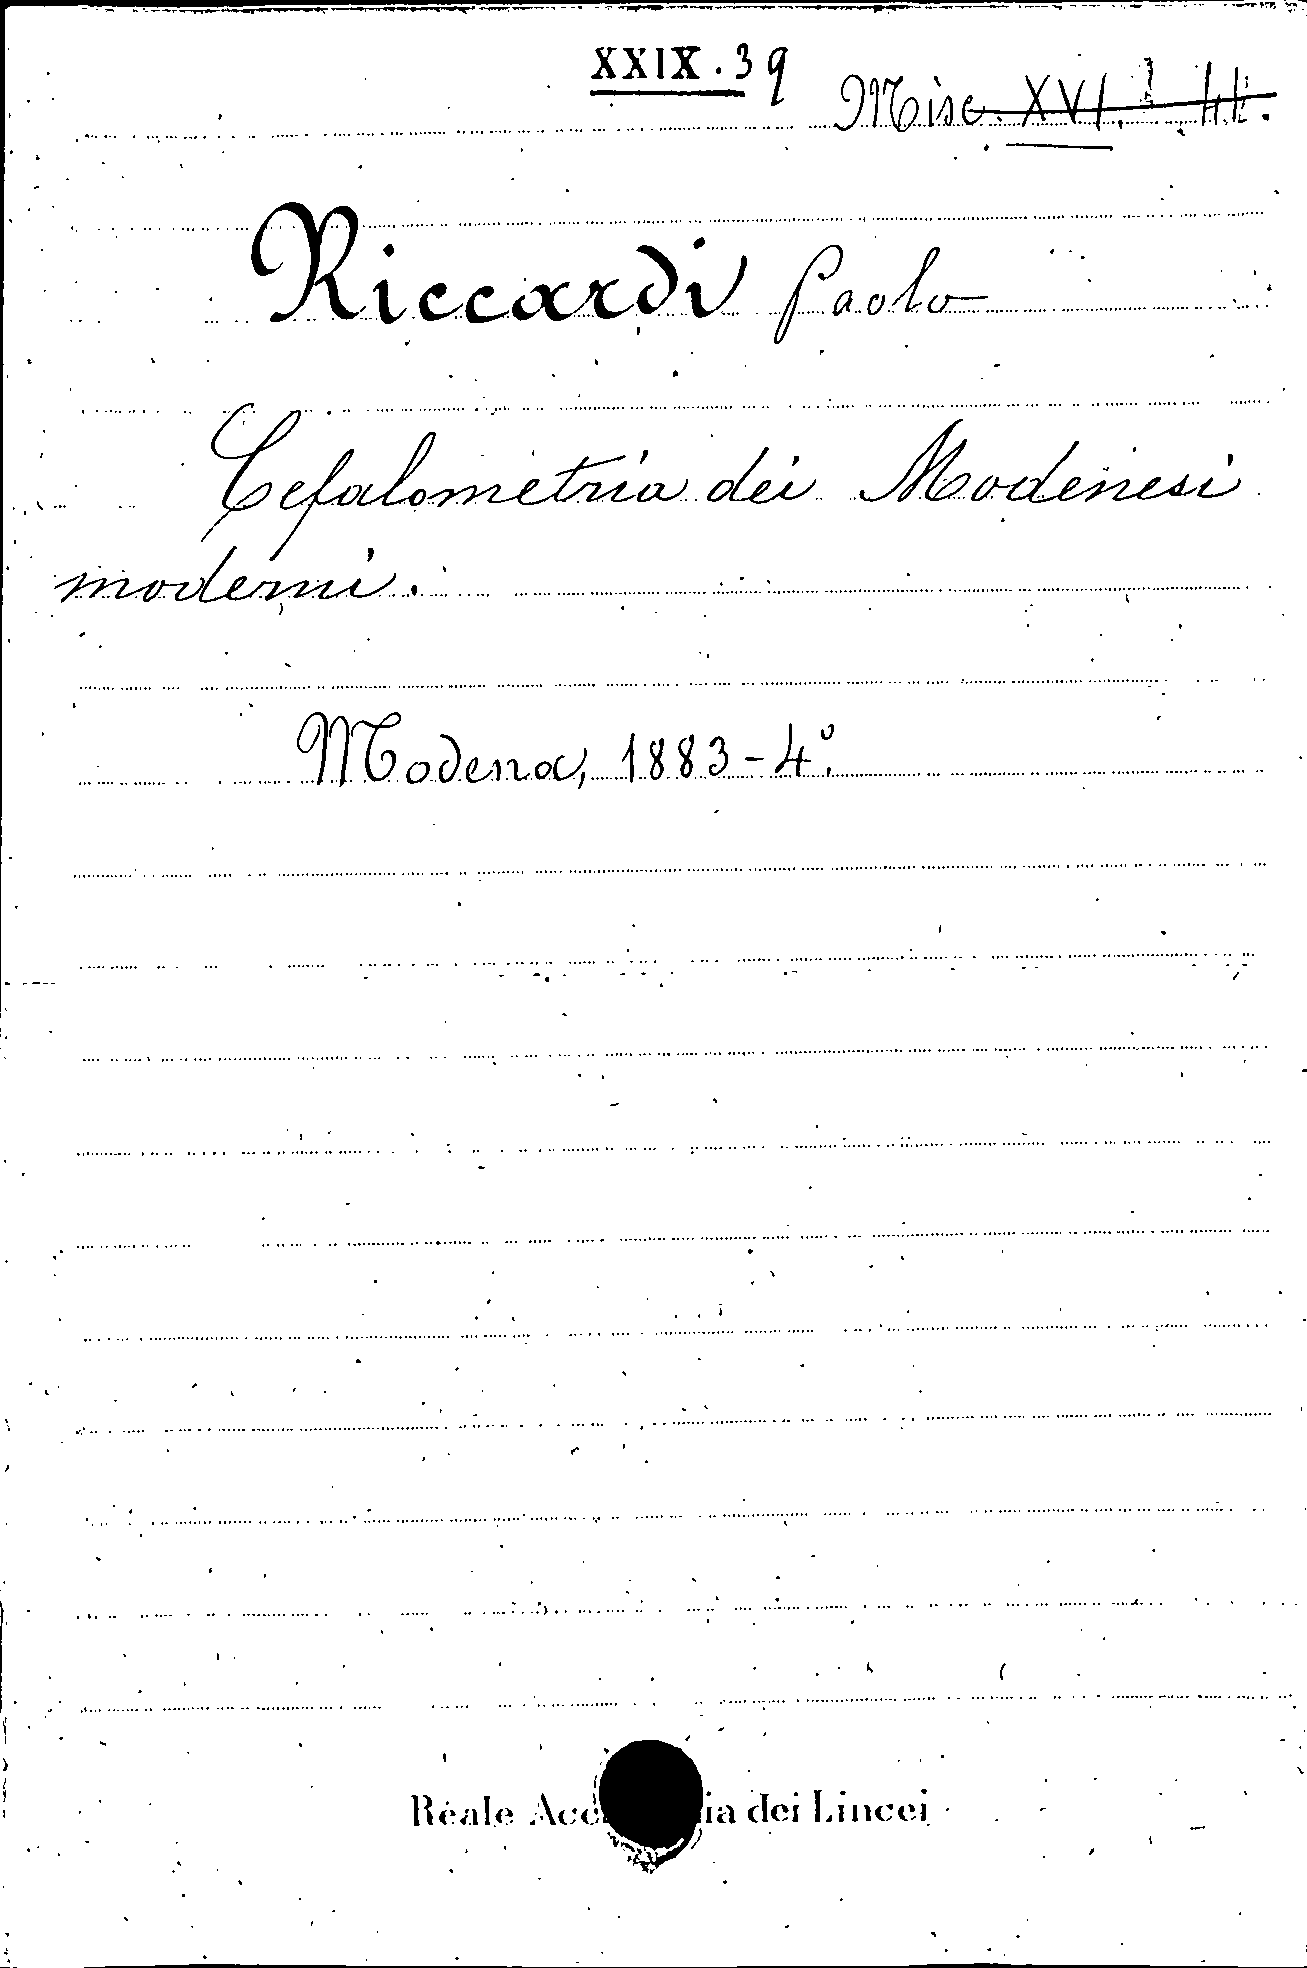 XXIX . 39
Misc. XVI.
Riccardi Paolo
Cefalometria dei Modenesi
moderni.
Modena, 1883 - 4º.
Reale Acc ia dei Lincei